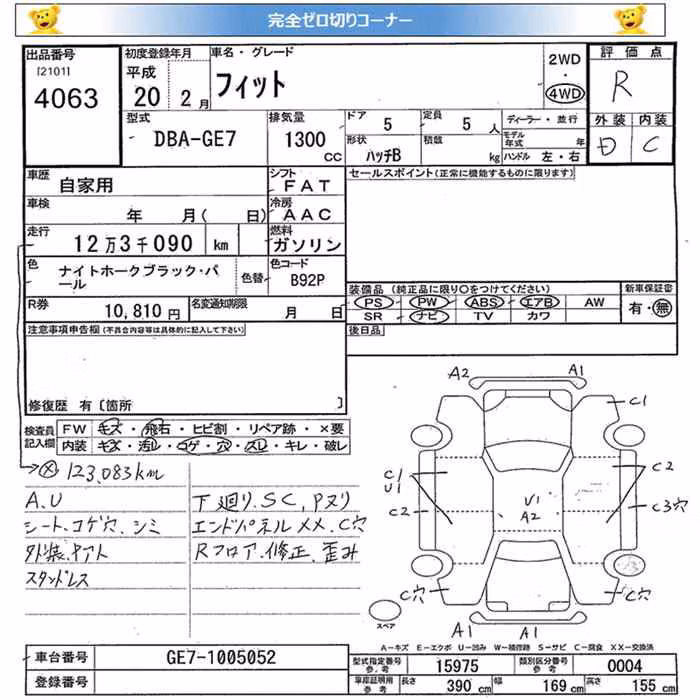 完全ゼロ切りコーナー
出品番号
[2101]
4063
初度登録年月
平成
20 2月
車名・グレード
フィット
2WD
・
4WD
評価点
R
型式
DBA-GE7
排気量
1300
CC
ドア
5
定員
5 人
ディーラー・並行
外装 内装
D C
形状
ハッチB
積載
kg
モデル年式 年
ハンドル 左・右
車歴
自家用
シフト
FAT
セールスポイント(正常に機能するものに限ります)
車検
年 月( 日)
冷房
AAC
走行
12万3千090 km
燃料
ガソリン
色
ナイトホークブラック・パール
色替
色コード
B92P
装備品 (純正品に限り○をつけてください)
新車保証書
PS PW ABS エアB AW
有・無
SR ナビ TV カワ
R券
10,810円
名変通知期限
月 日
後日品
注意事項申告欄(不具合内容等は具体的に記入して下さい)
修復歴 有〔箇所 〕
検査員記入欄
FW キズ・飛石・ヒビ割・リペア跡・×要
内装 キズ・汚レ・コゲ・穴・スレ・キレ・破レ
× 123,083km
A.U
シート.コゲ穴.シミ
外装.ヤケト
スタッドレス
下廻り.SC,Pヌリ
エンドパネルXX.C穴
Rフロア.修正.歪み
A2 A1
C1
C1
U1
C2
U1
A2
C2
C3穴
C穴
C穴
A1 A1
スペア
A-キズ E-エクボ U-凹み W-補修跡 S-サビ C-腐食 XX-交換済
車台番号
GE7-1005052
登録番号
型式指定番号
参考
15975
類別区分番号
参考
0004
車庫証明用
参考
長さ
390 cm
幅
169 cm
高さ
155 cm